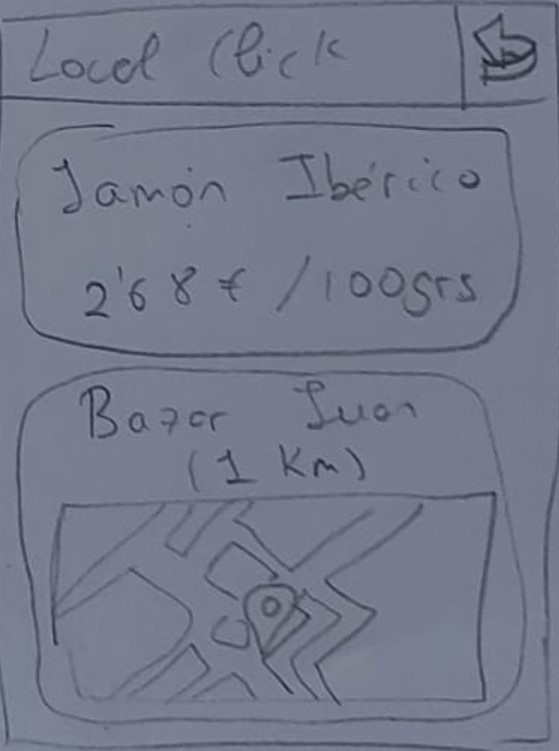 Local Click
Jamón Ibérico
2'68€ /100grs
Bazar Juan
(1 Km)